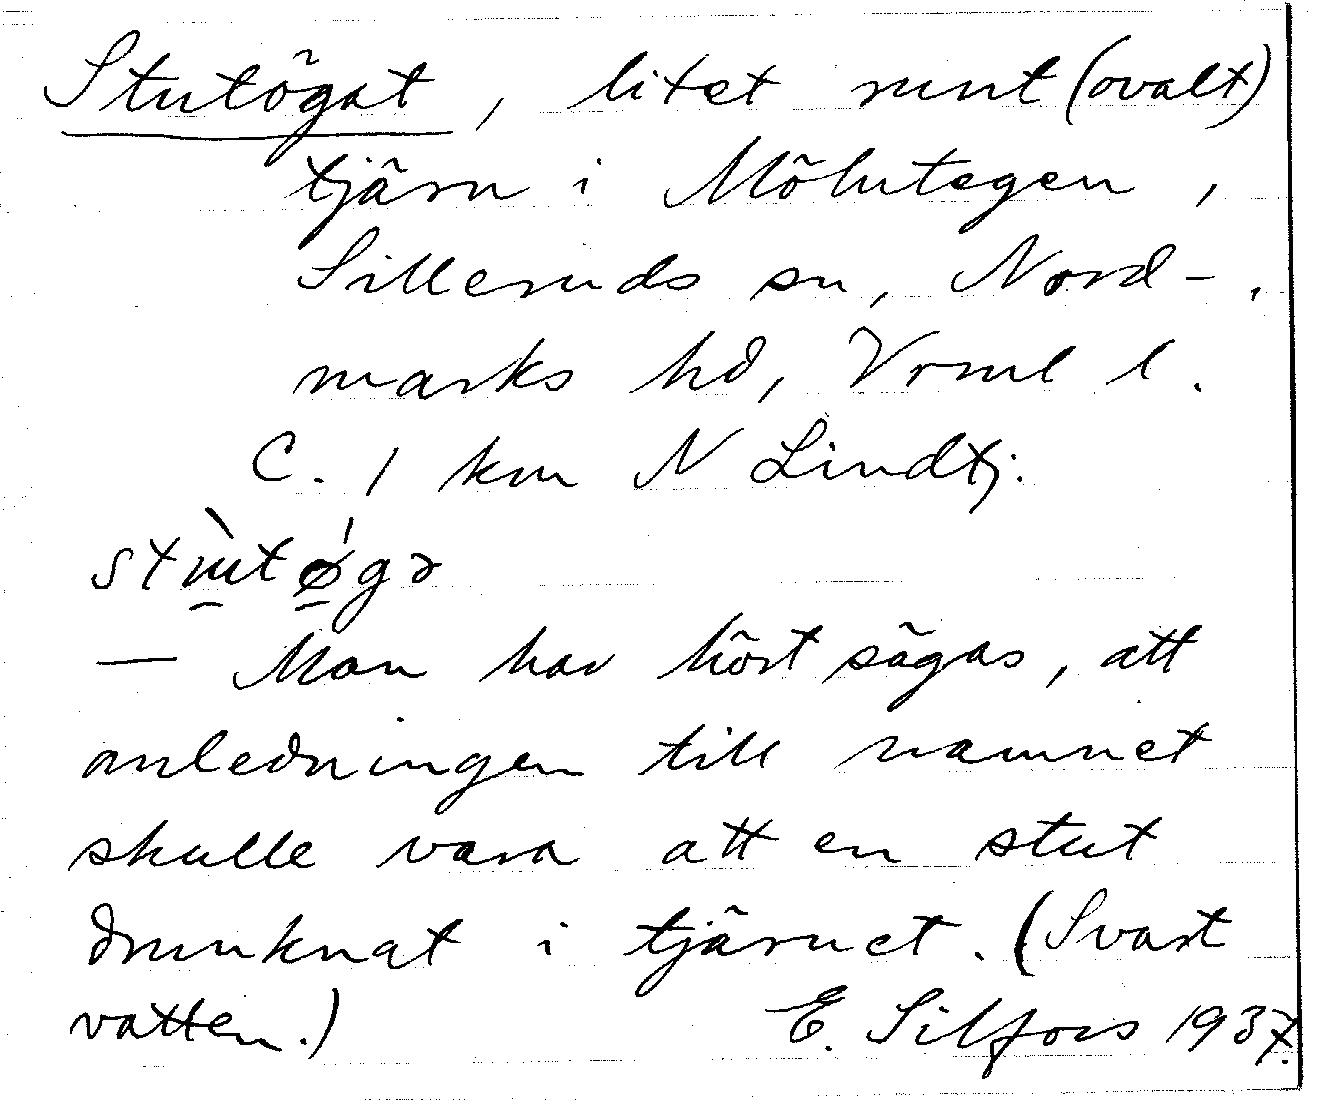 Stutögat, litet runt (ovalt)
tjärn i Mölntegen,
Silleruds sn, Nord-
marks hd, Vrml l.
C. 1 km N Lindtj.
stɯ̀tǿgə
— Man har hört sägas, att
anledningen till namnet
skulle vara att en stut
drunknat i tjärnet. (Svart
vatten.) E. Silfors 1937.